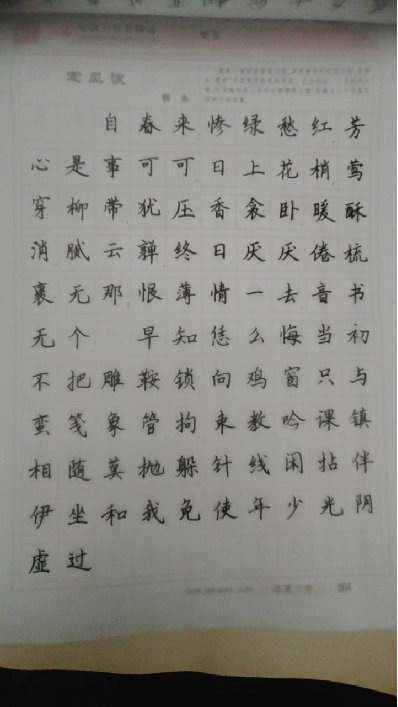 定风波
柳永
自春来惨绿愁红芳
心是事可可日上花梢莺
穿柳带犹压香衾卧暖酥
消腻云亸终日厌厌倦梳
裹无那恨薄情一去音书
无个 早知恁么悔当初
不把雕鞍锁向鸡窗只与
蛮笺象管拘束教吟课镇
相随莫抛躲针线闲拈伴
伊坐和我免使年少光阴
虚过